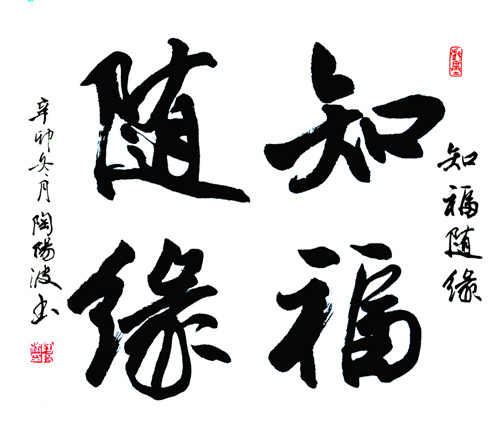 知福随缘
知福
随缘
辛卯冬月陶阳波书